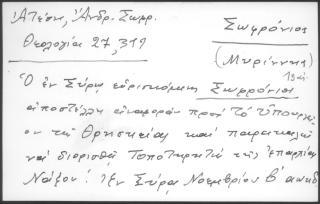 Ἀτέση, Ἀνδρ. Σωφρ.
Θεολογία 27, 319
Σωφρόνιος
(Μυρίννης)
19 αἰ.
Ὁ ἐν Σύρῳ εὑρισκόμενος Σωφρόνιος
ἀποστέλλει ἀναφοράν πρός τό Ὑπουργεῖ
ον τῆς Θρησκείας καί παρακαλεῖ
νά διορισθῇ Τοποτηρητής τῆς ἐπαρχίας
Νάξου! Ἐξν Σύρᾳ Νοεμβρίου β΄